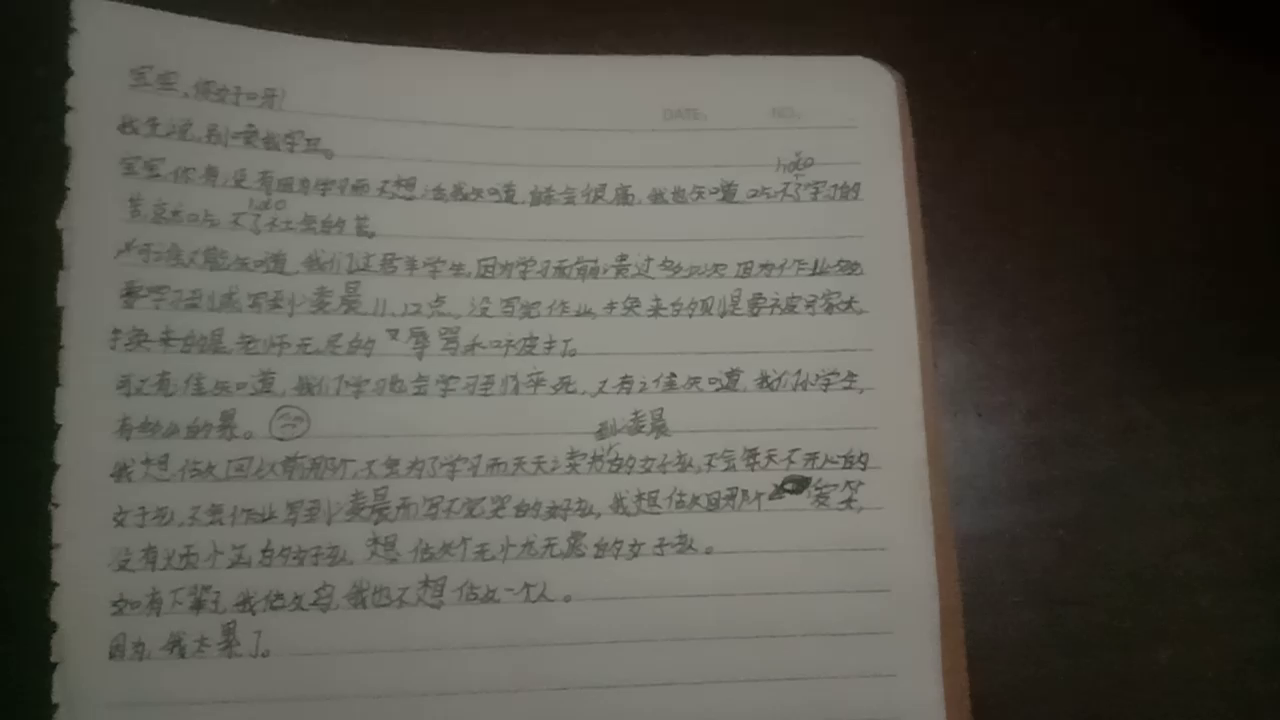 宝宝，你好呀！
DATE. NO.
我先说，别喷我字丑。
hdo
宝宝你有没有因为学习而不想活我知道，会很痛，我也知道，吃不了学习的
hdo
苦，就吃不了社会的苦。
又有谁又能知道，我们这群羊学生，因为学习而崩溃过多少次，因为作业
要学习到或写到凌晨11、12点，没写完作业，换来的则是要被号家长，
换来的是，老师无尽的辱骂和呀度打。
可又有谁知道，我们学习也会学习到猝死，又有谁知道，我们小学生，
到凌晨
有多么的累。
我想做回以前那个，不会为了学习而天天的女孩，不会每天不开心的
女孩，不会作业写到凌晨而写不完哭的女孩，我想做回那个爱笑，
没有烦心的女孩，想做个无忧无虑的女孩。
如有下辈子，我做文鸟，我也不想做一个人。
因为，我太累了。